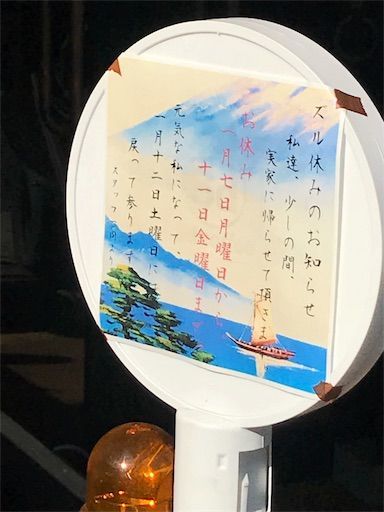 ズル休みのお知らせ
私達、少しの間、
実家に帰らせて頂きます
お休み
一月七日月曜日から
十一日金曜日まで
元気な私になって
一月十二日土曜日に
戻って参ります
スタッフ一同より